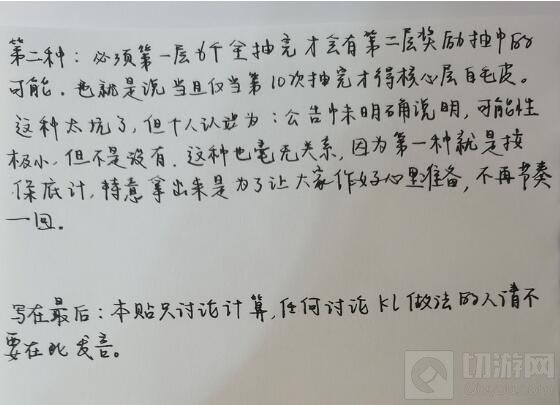 第二种：必须第一层6个全抽完才会有第二层奖励抽中的
可能。也就是说当且仅当第10次抽完才得核心层白毛皮。
这种太坑了，但个人认为：公告中未明确说明，可能性
极小，但不是没有。这种也毫无关系，因为第一种就是按
保底计，特意拿出来是为了让大家作好心里准备，不再节奏
一回。
写在最后：本贴只讨论计算，任何讨论KL做法的人请不
要在此发言。
切游网